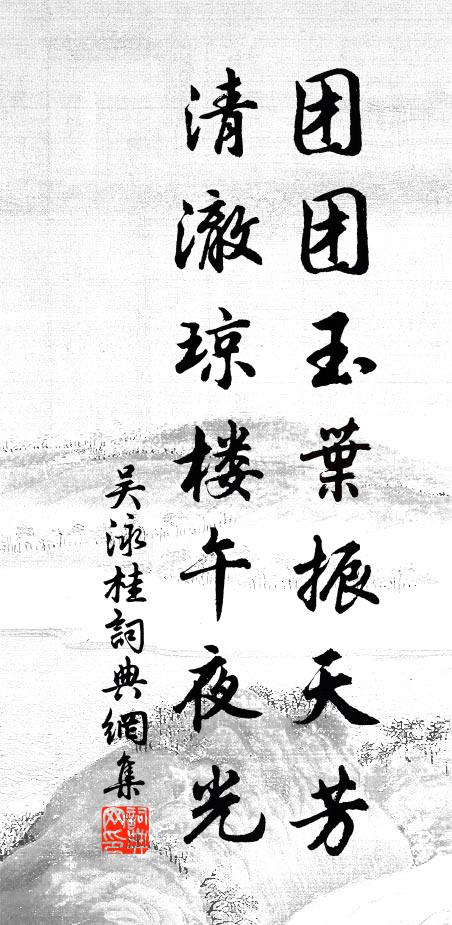 团团玉葉振天芳
清澈琼楼午夜光
吴泳桂詞典網集